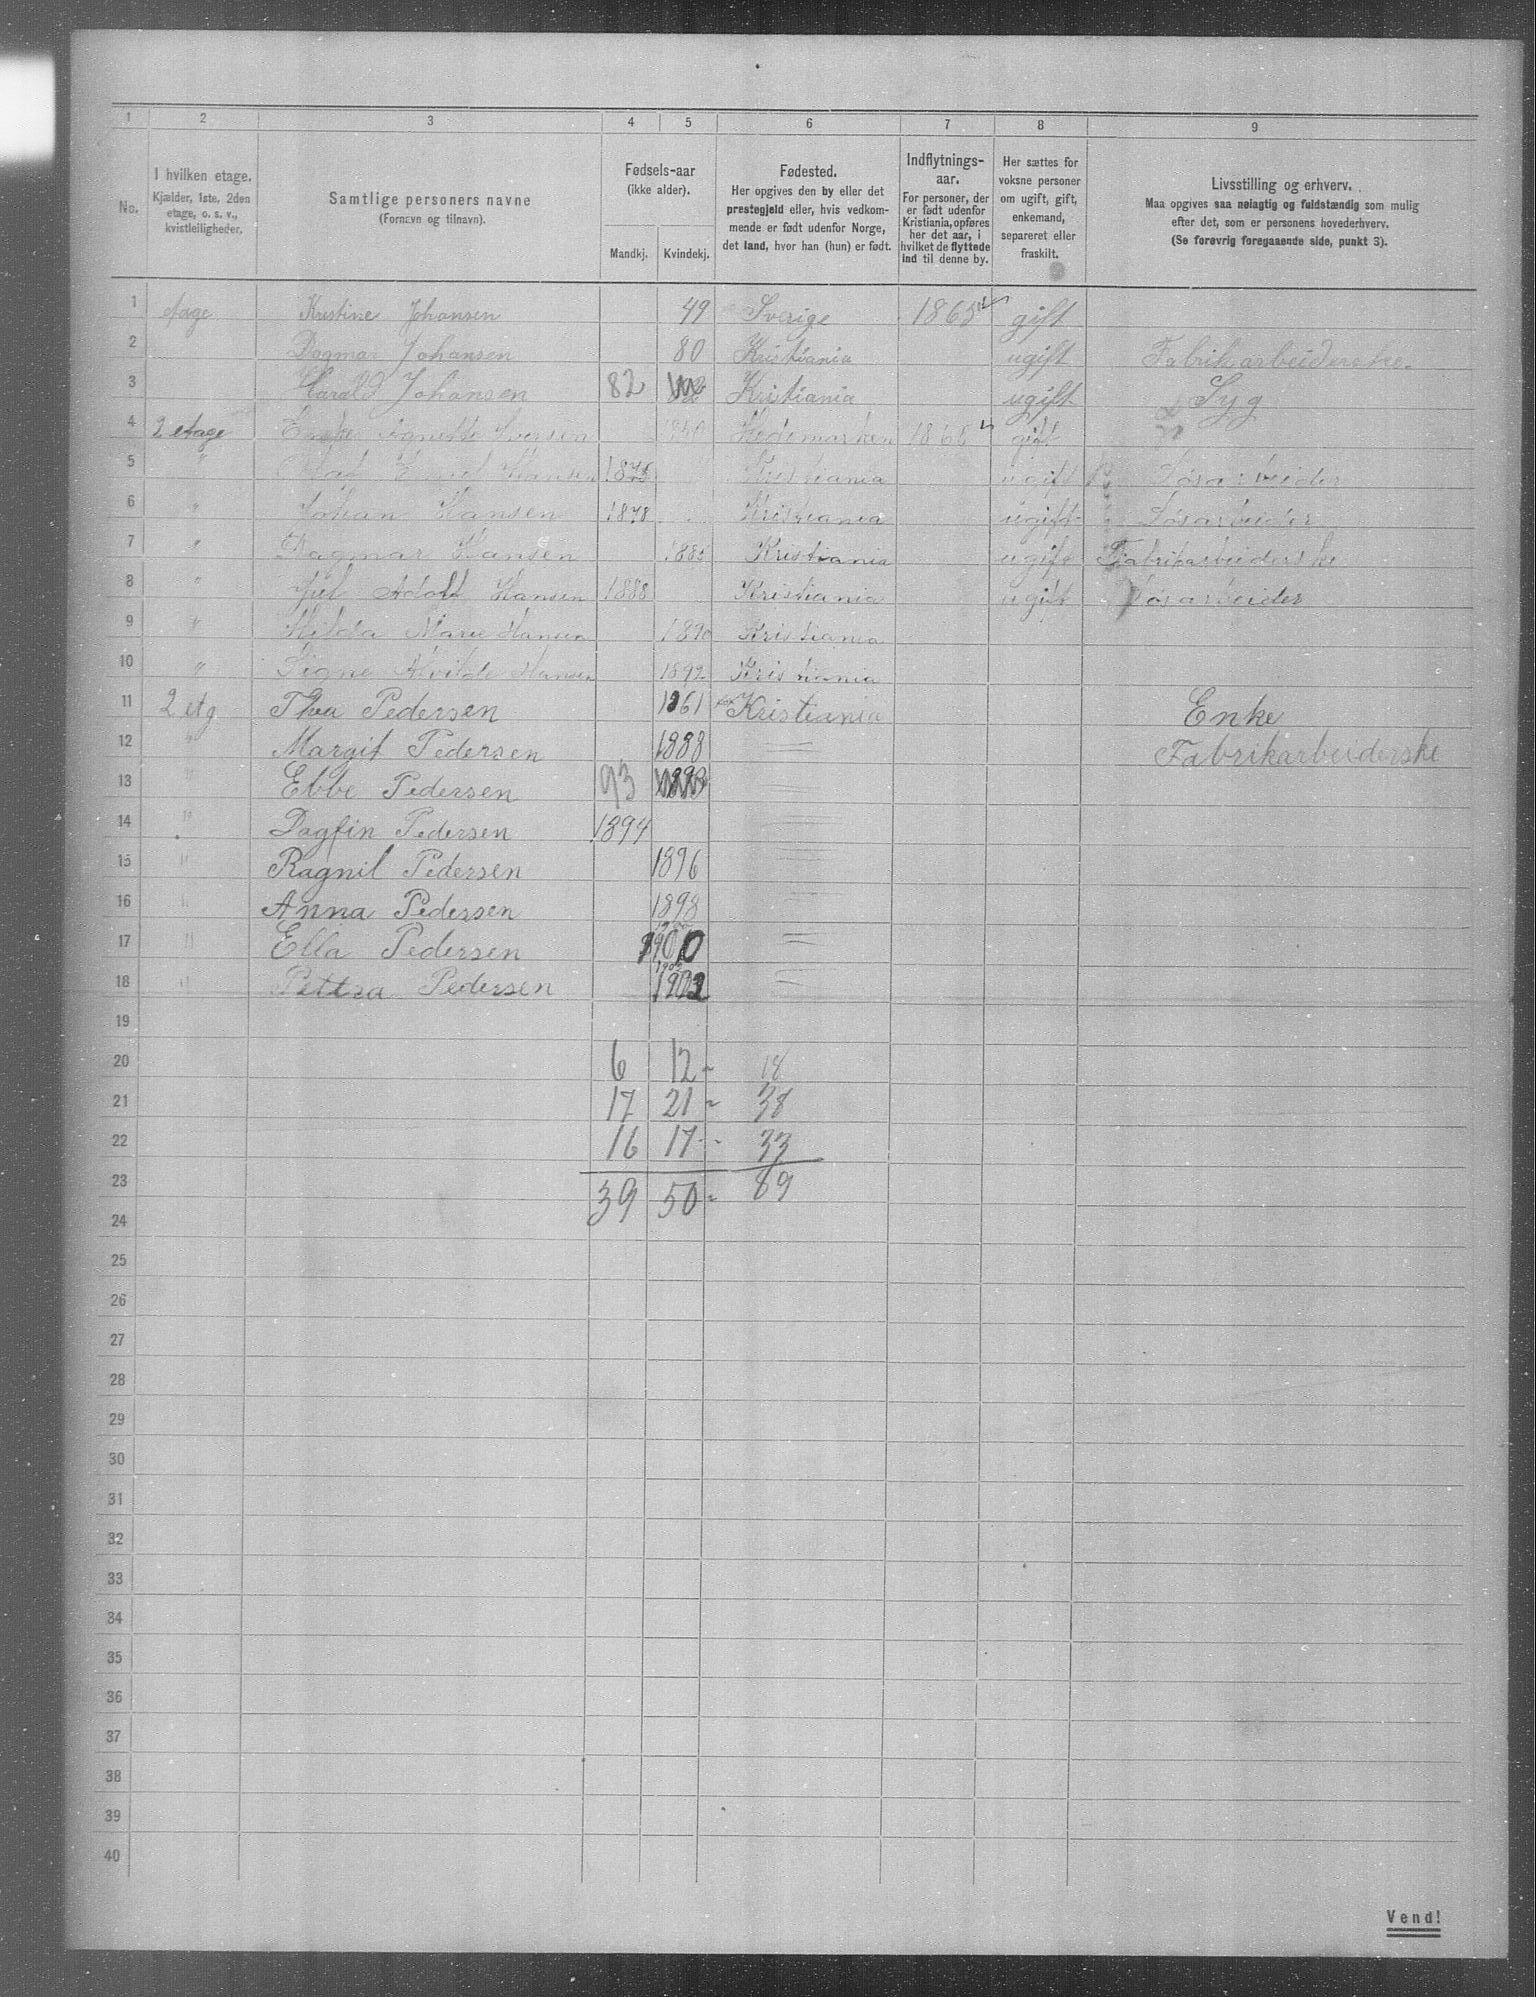 1 2 3 4 5 6 7 8 9
No.
I hvilken etage.
Kjælder, 1ste, 2den
etage, o. s. v.,
kvistleiligheder.
Samtlige personers navne
(Fornavn og tilnavn).
Fødsels-aar
(ikke alder).
Mandkj. Kvindekj.
Fødested.
Her opgives den by eller det
prestegjeld eller, hvis vedkom-
mende er født udenfor Norge,
det land, hvor han (hun) er født.
Indflytnings-
aar.
For personer, der
er født udenfor
Kristiania, opføres
her det aar, i
hvilket de flyttede
ind til denne by.
Her sættes for
voksne personer
om ugift, gift,
enkemand,
separeret eller
fraskilt.
Livsstilling og erhverv.
Maa opgives saa nøiagtig og fuldstændig som mulig
efter det, som er personens hovederhverv.
(Se forøvrig foregaaende side, punkt 3).
1 etage Kristine Johansen 49 Sverige 1865 gift
2 Dagmar Johansen 80 Kristiania ugift Fabrikarbeiderske.
3 Harald Johansen 82 Kristiania ugift Syg
4 2 etage Agnette Iversen 1850 Hedemarken 1868 gift
5 " Hansen 1876 Kristiania ugift Løsarbeider
6 " Johan Hansen 1878 Kristiania ugift Løsarbeider
7 " Dagmar Hansen 1885 Kristiania ugift Fabrikarbeiderske
8 " Adolf Hansen 1888 Kristiania ugift Løsarbeider
9 " Hilda Marie Hansen 1890 Kristiania
10 " Signe Alvilde Hansen 1892 Kristiania
11 2 etg Thea Pedersen 1861 Kristiania Enke
12 " Margit Pedersen 1888 " Fabrikarbeiderske
13 " Ebbe Pedersen 93 "
14 " Dagfin Pedersen 1894 "
15 " Ragnil Pedersen 1896 "
16 " Anna Pedersen 1898 "
17 " Ella Pedersen 1900 "
18 " Pettra Pedersen 1902 "
19
20 6 12 - 18
21 17 21 - 38
22 16 17 - 33
23 39 50 - 89
24
25
26
27
28
29
30
31
32
33
34
35
36
37
38
39
40
Vend!